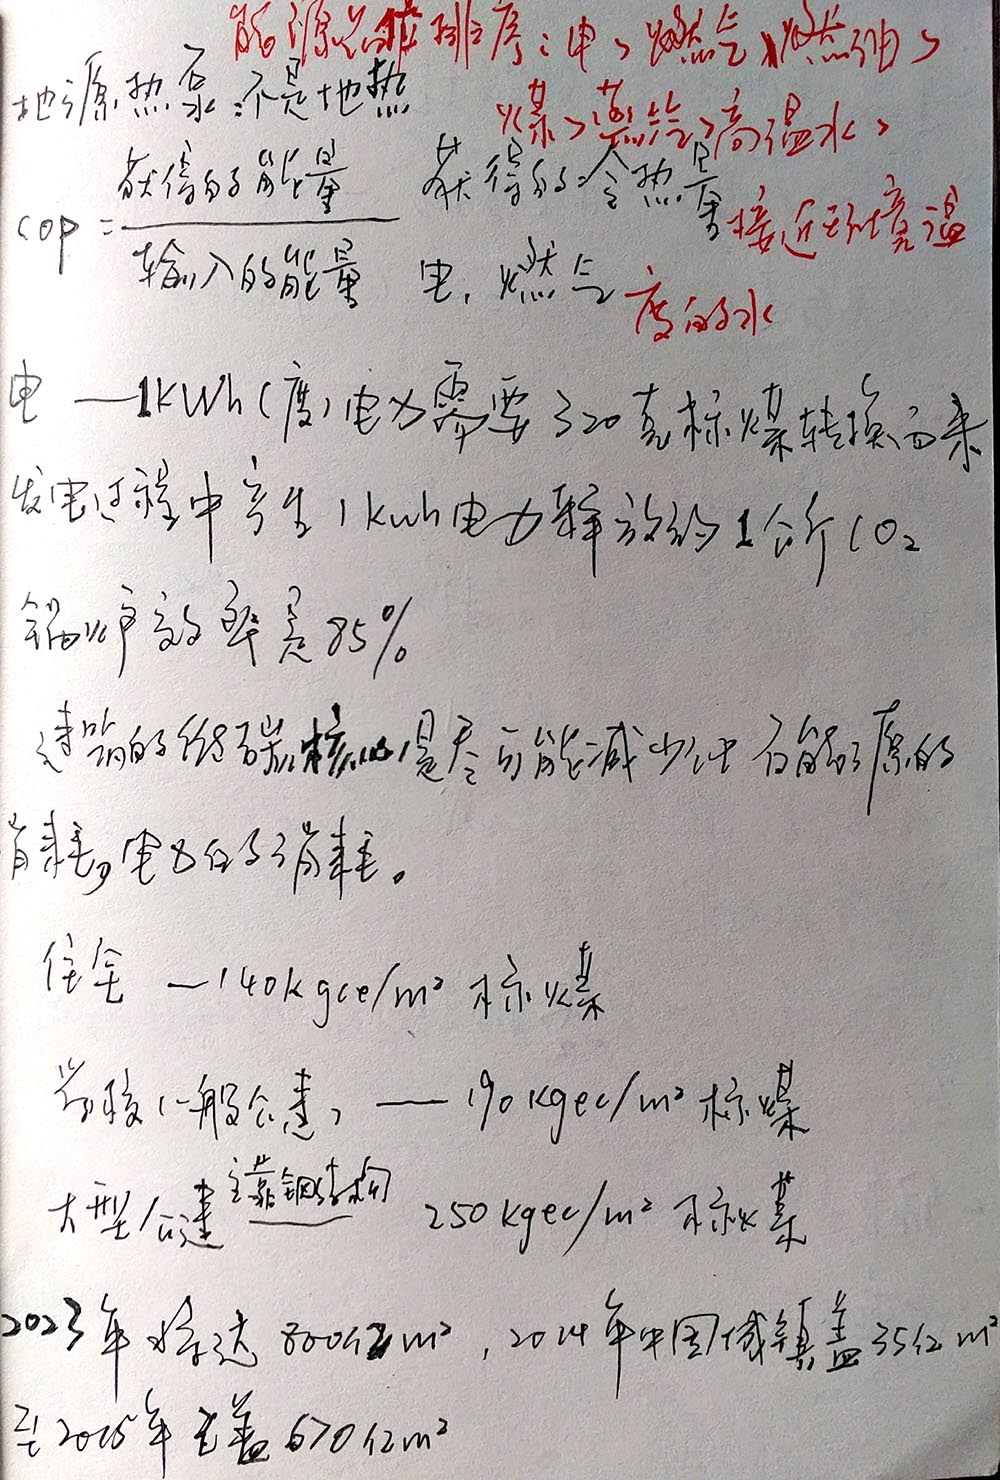 能源品位排序：电>燃气>燃油>
煤>蒸气>高温水>
接近环境温
度的水
地源热泵：不是地热
COP = 获得的能量 获得的冷热量
输入的能量 电、燃气
电 — 1KWh（度）电力需要320克标煤转换而来
发电过程中产生1kwh电力释放约1公斤CO₂
锅炉效率是85%
建筑的低碳核心是尽可能减少化石能源的
消耗，电力的消耗。
住宅 — 140kgce/m² 标煤
学校（一般公建） — 190kgec/m² 标煤
大型公建 主靠钢结构 250kgec/m² 标煤
2023年将达800亿m²，2014年中国城镇盖35亿m²
至2015年已盖670亿m²